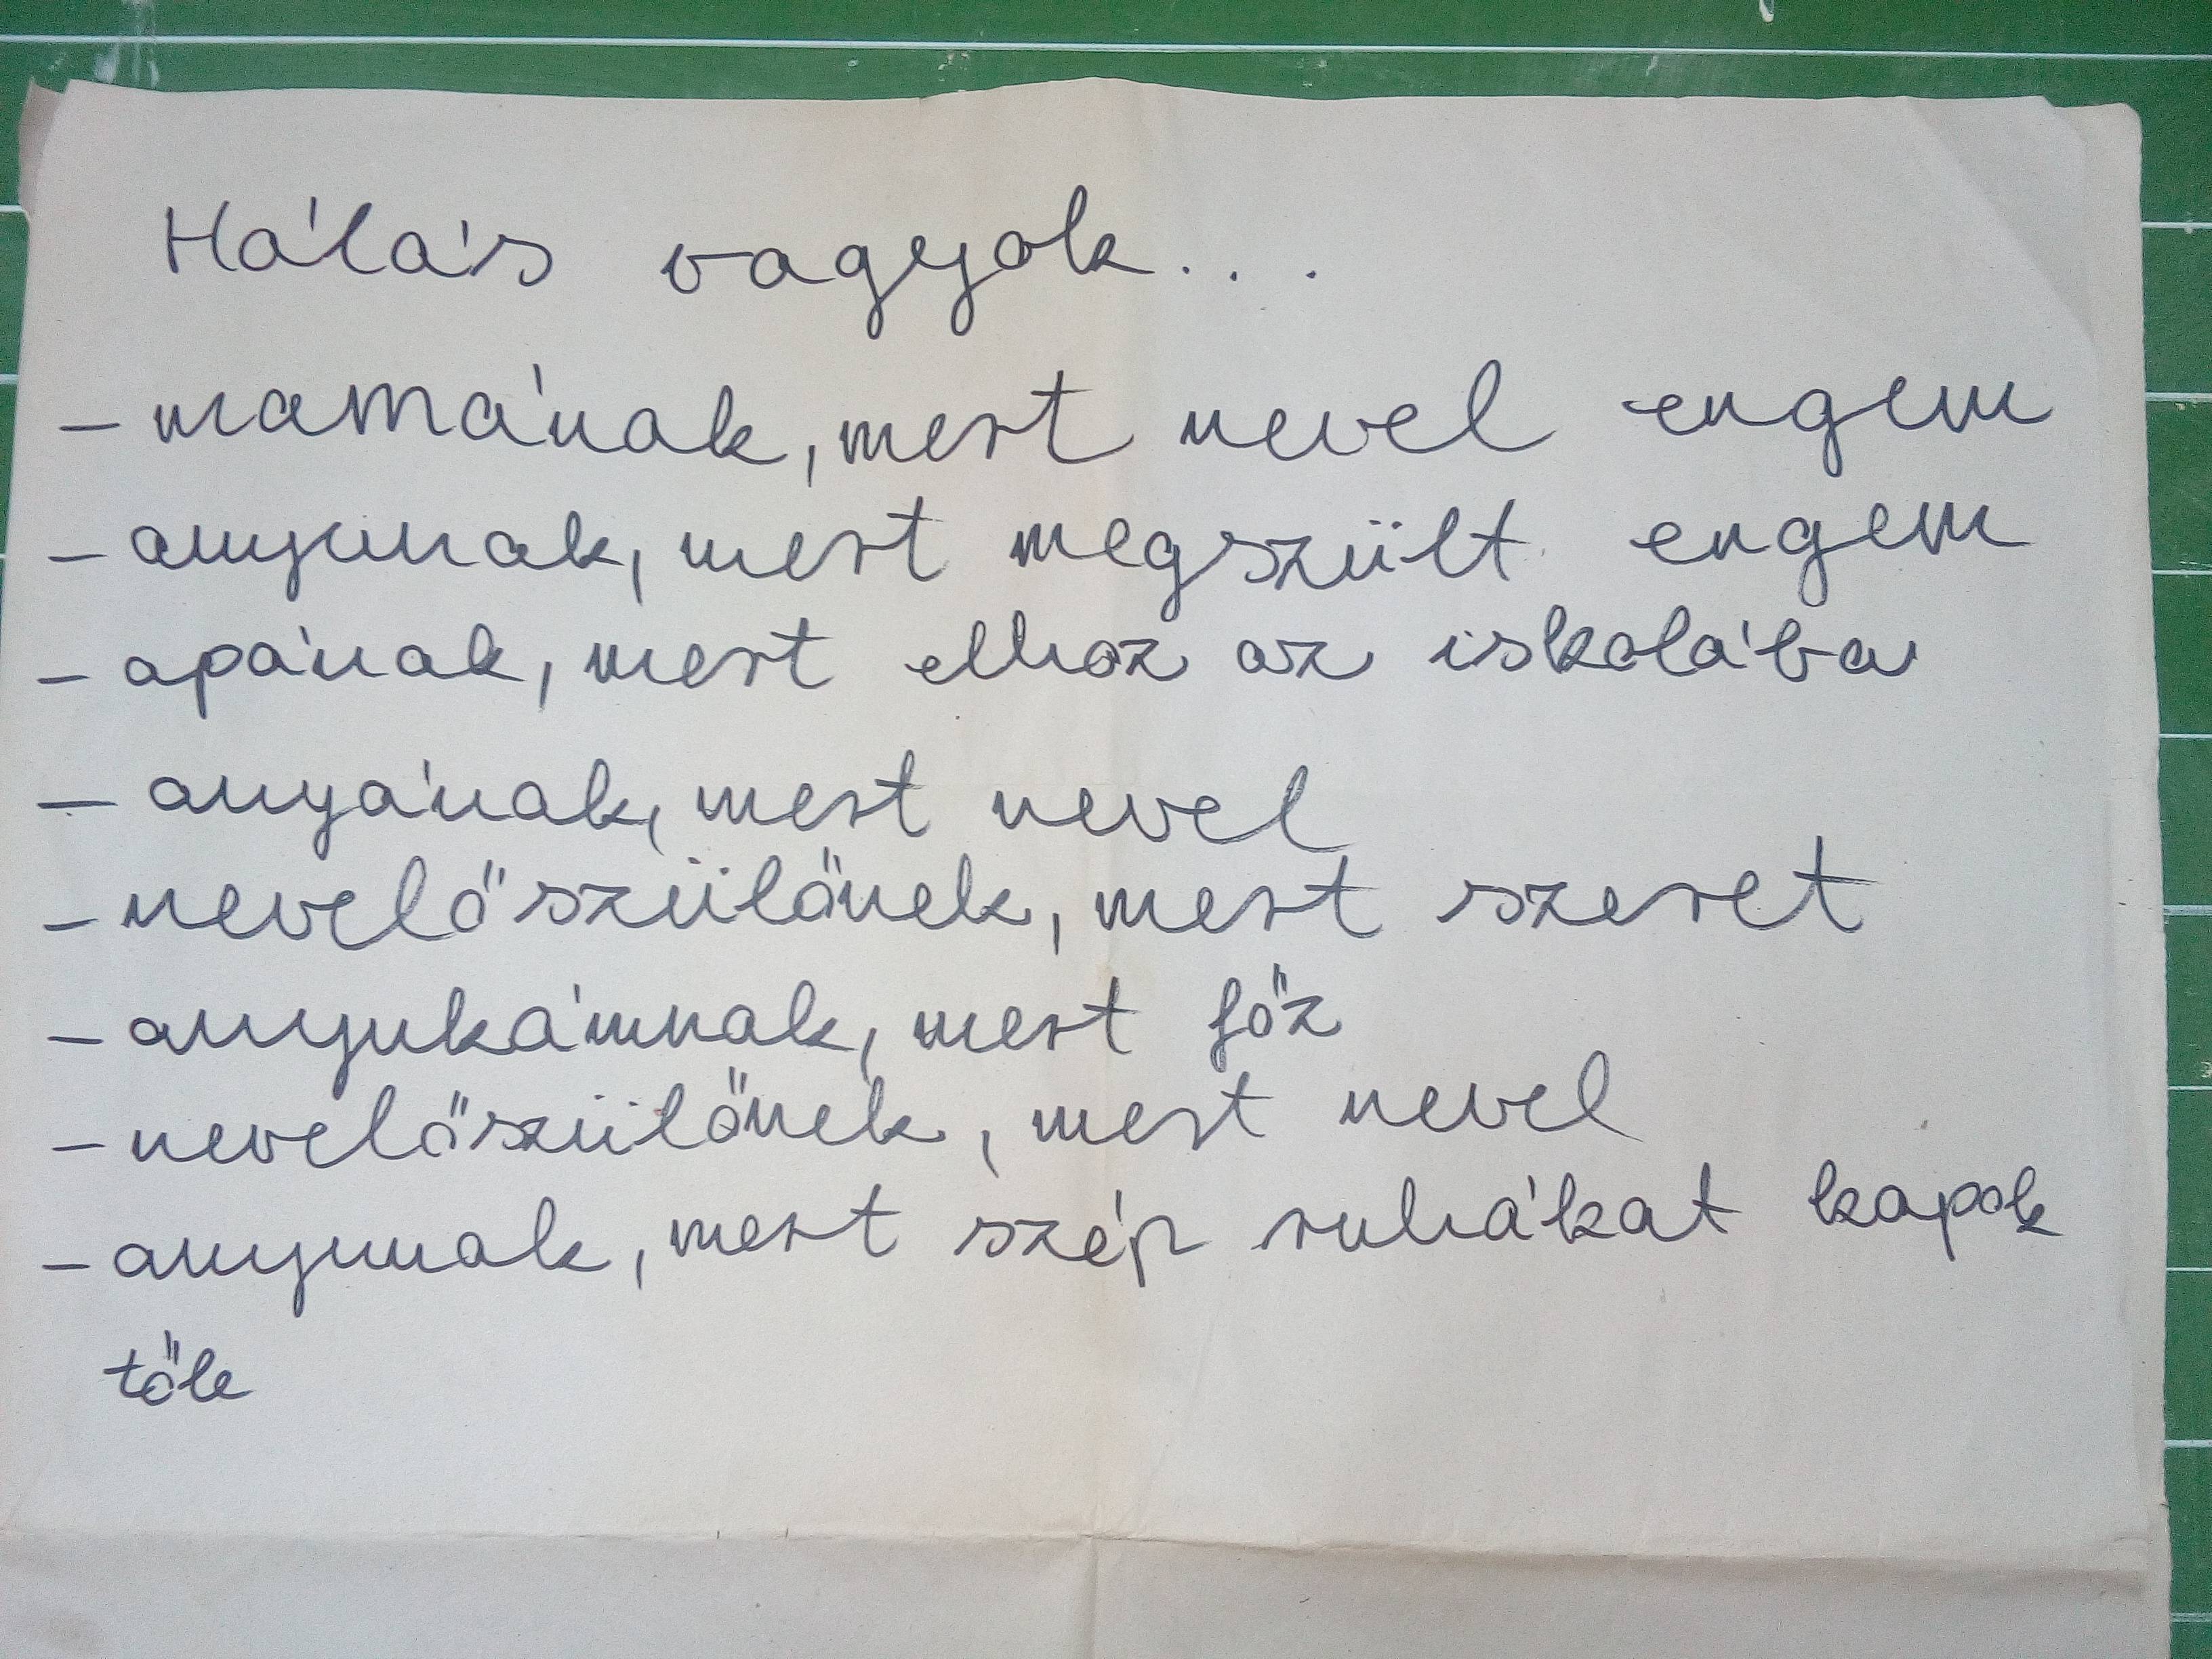 Hálás vagyok...
- mamának, mert nevel engem
- anyunak, mert megszült engem
- apának, mert elhoz az iskolába
- anyának, mert nevel
- nevelőszülőnek, mert szeret
- anyukámnak, mert főz
- nevelőszülőnek, mert nevel
- anyunak, mert szép ruhákat kapok
tőle